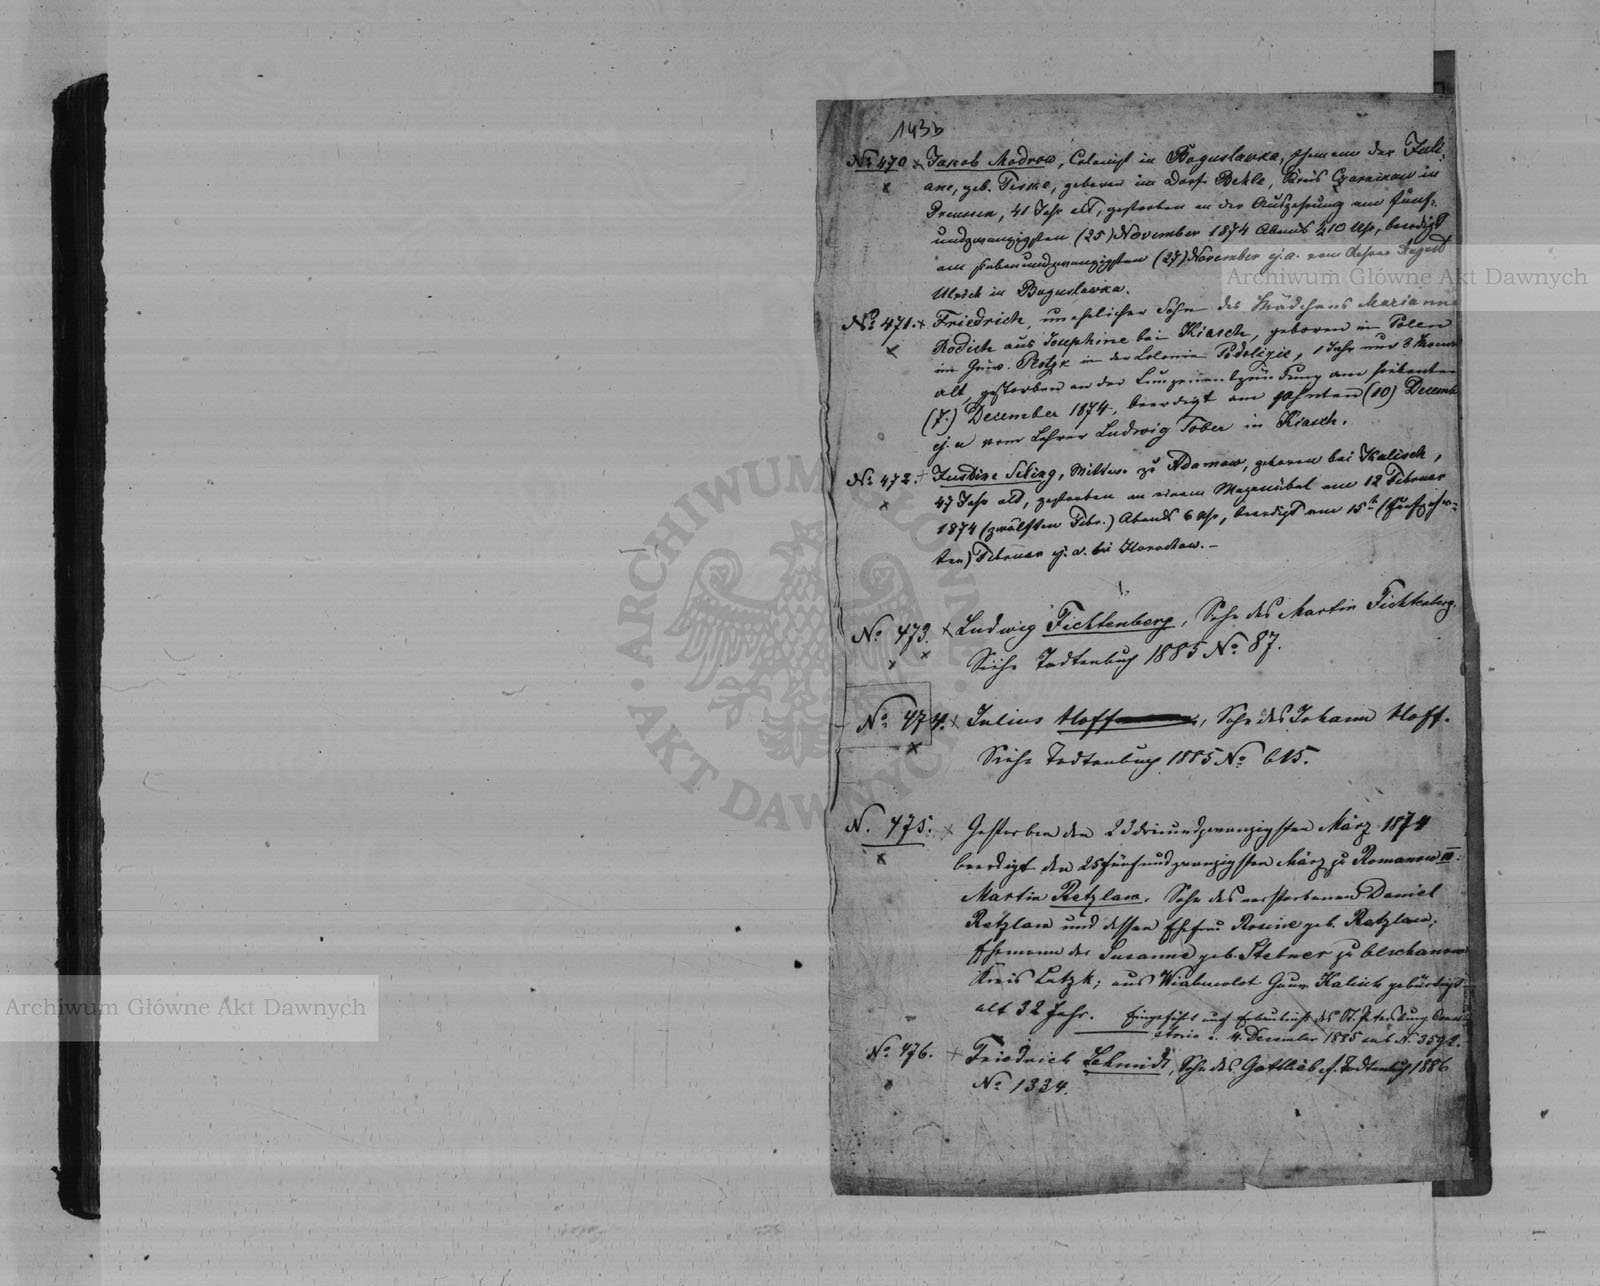 143b
No 470. Jakob Modrow, Colonist in Boguslawka, Ehemann der Juli-
ane, geb. Teske, geboren im Dorfe Behle, Kreis Czarnikow in
Preussen, 41 Jahr alt, gestorben an der Auszehrung am fünf-
undzwanzigsten (25) November 1874 Abends ½10 Uhr, beerdigt
am siebenundzwanzigsten (27) November ej. a. vom Lehrer August
Ulrich in Boguslawka.
No 471. Friedrich, unehelicher Sohn des Mädchens Marianne
Rodich aus Josephine bei Kiasch, geboren in Polen
im Gouv. Plotzk in der Colonie, 1 Jahr und 3 Monat
alt, gestorben an der Lungenentzündung am siebenten
(7.) December 1874, beerdigt am zehnten (10) Decemb
ej. a vom Lehrer Ludwig Tober in Kiasch.
No 472. Justine, zu Adamow, geboren bei Kalisch,
47 Jahr alt, gestorben an einem Magenübel am 12 Februar
1874 (zwölften Febr.) Abends 6 Uhr, beerdigt am 15ten (fünfzehn-
ten) Februar ej. a. bei Horochow.
No 473. Ludwig Fichtenberg, Sohn des Martin Fichtenberg.
Siehe Todtenbuch 1885 No 87.
No 474. Julius Hoff, Sohn des Johann Hoff.
Siehe Todtenbuch 1885 No 615.
N. 475. Gestorben den 23 dreiundzwanzigsten März 1874
beerdigt den 25 fünfundzwanzigsten März zu Romanow III:
Martin Retzlaw, Sohn des verstorbenen Daniel
Retzlaw und dessen Ehefrau Rosine geb. Retzlaw;
Ehemann der Susanne geb. Stebner zu Olschanow
Kreis Lutzk; aus Gouv. Kalisch gebürtigt
alt 32 Jahr. Eingeführt nach Erlaubniß des St. Petersburg. Consi-
storio v. 4. December 1885 sub N. 3592.
No 476. Friedrich Schmidt, Sohn des Gottlieb cf. Todtenbuch 1886
No 1334.
Archiwum Główne Akt Dawnych
Archiwum Główne Akt Dawnych
ARCHIWUM GŁÓWNE AKT DAWNYCH